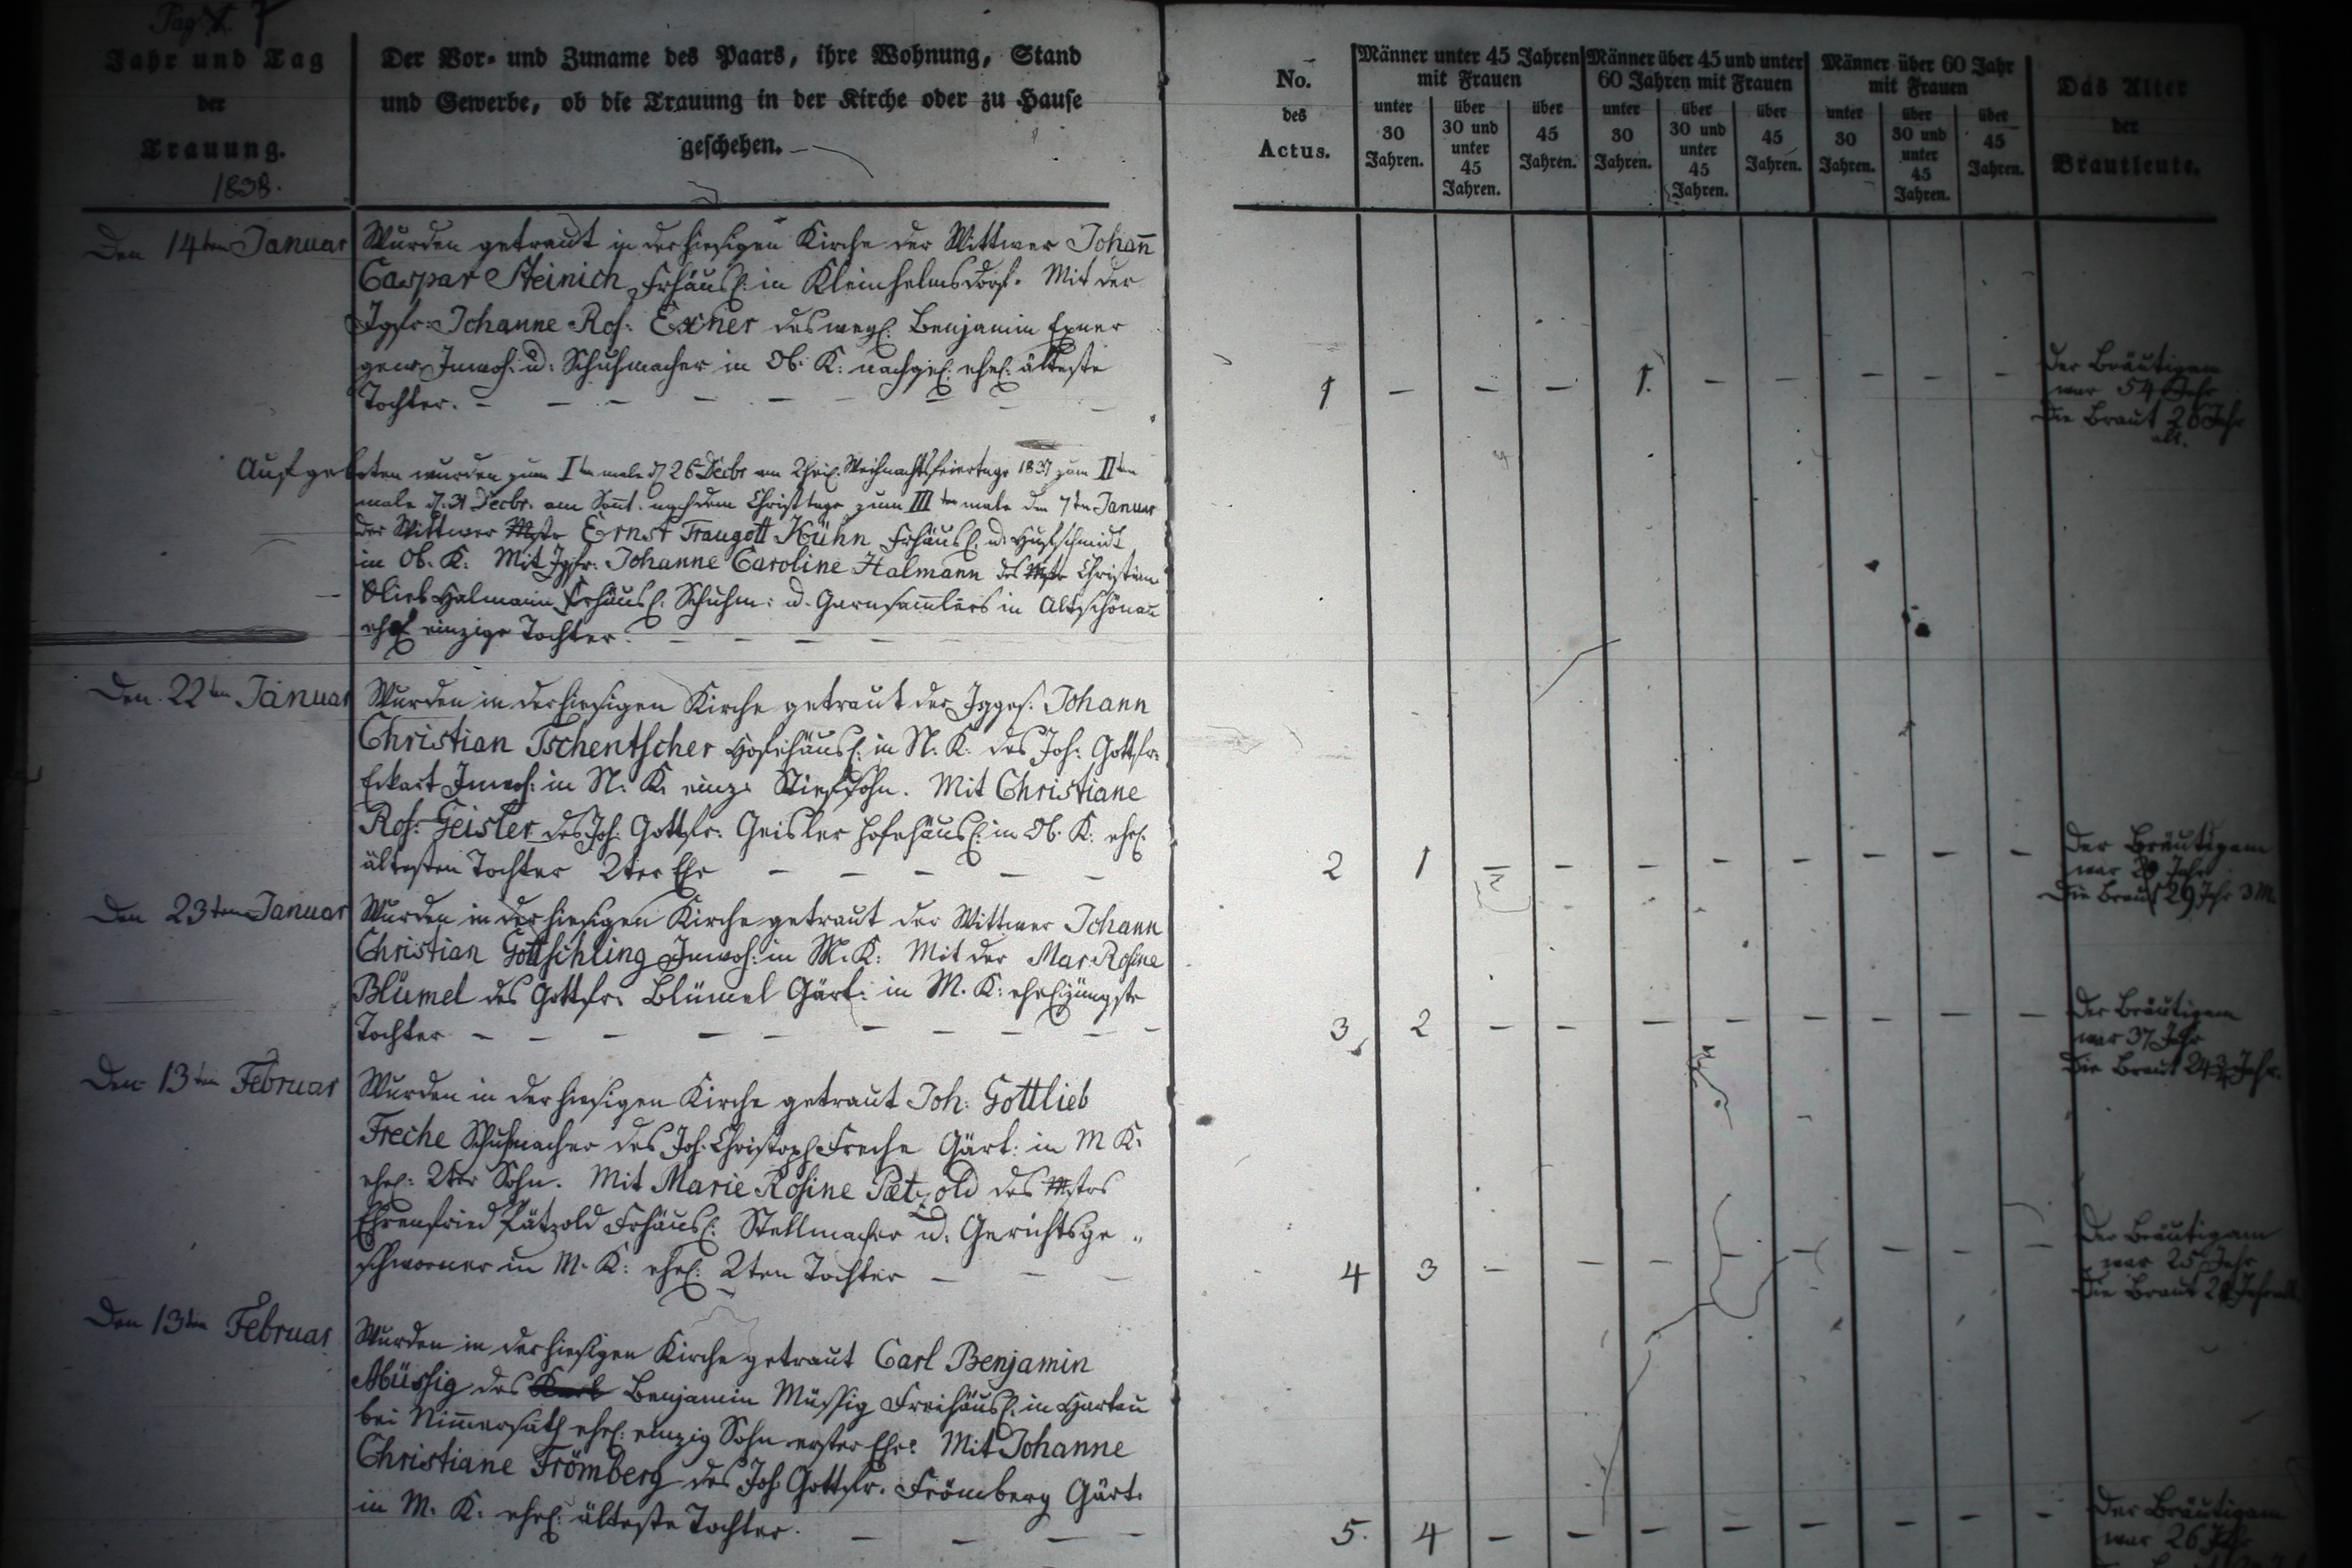 Pag. 7
Jahr und Tag
der
Trauung.
1838.
Der Vor- und Zuname des Paars, ihre Wohnung, Stand
und Gewerbe, ob die Trauung in der Kirche oder zu Hause
geschehen.
No.
des
Actus.
Männer unter 45 Jahren
mit Frauen
unter
30
Jahren.
über
30 und
unter
45
Jahren.
über
45
Jahren.
Männer über 45 und unter
60 Jahren mit Frauen
unter
30
Jahren.
über
30 und
unter
45
Jahren.
über
45
Jahren.
Männer über 60 Jahr
mit Frauen
unter
30
Jahren.
über
30 und
unter
45
Jahren.
über
45
Jahren.
Das Alter
der
Brautleute.
Den 14ten Januar
Wurden getraut in der hiesigen Kirche der Wittwer Johañ
Caspar Steinich Frhäusl: in Kleinhelmsdorf. Mit der
Jgfr: Johanne Ros: Exner des weyl: Benjamin Exner
gew. Inwoh: u: Schuhmacher in Ob. K: nachgel: ehel: älteste
Tochter. - - - - - - - - -
1 - - - 1. - - - - -
Der Bräutigam
war 54 Jahr
Die Braut 26 Jahr
alt.
Aufgeboten wurden zum Iten male d. 26 Decbr am Weihnachtsfeiertage 1837 zum IIten
male d. 31 Decbr. am Soñt. nach dem Christtage zum IIIten male den 7ten Januar
der Wittwer Mstr Ernst Traugott Kühn Frhäusl: u. Hufschmidt
in Ob. K: Mit Jgfr: Johanne Caroline Halmann des Mstr Christian
Glieb Halmann Frhäusl: Schuhm: u. Garnsam̄lers in Altschönau
ehel einzige Tochter. - - - -
Den 22ten Januar
Wurden in der hiesigen Kirche getraut der Jgges. Johann
Christian Tschentscher Hofehäusl: in N. K: des Joh: Gottfr:
Eckart Inwoh: in N. K. einz: Stiefsohn. Mit Christiane
Ros: Geisler des Joh: Gottfr: Geisler Hofehäusl: in Ob. K: ehel:
ältesten Tochter 2ter Ehe - - - - -
2 1 - - - - - - - -
Der Bräutigam
war Jahr
Die Braut 29 Jahr 3 M.
Den 23ten Januar
Wurden in der hiesigen Kirche getraut der Wittwer Johann
Christian Gottschling Inwoh: in M. K: Mit der Mar. Rosine
Blümel des Gottfr: Blümel Gärt: in M. K: ehel jüngste
Tochter - - - - - - - - -
3 2 - - - - - - - -
Der Bräutigam
war 37 Jahr
Die Braut Jahr.
Den 13ten Februar
Wurden in der hiesigen Kirche getraut Joh: Gottlieb
Freche Schuhmacher des Joh: Christoph Freche Gärt: in M K:
ehel: 2ter Sohn. Mit Marie Rosine Pätzold des Mstrs
Ehrenfried Pätzold Frhäusl: Stellmacher u: Gerichtsge„
schworner in M. K: ehel: 2ten Tochter - - -
4 3 - - - - - - - -
Der Bräutigam
war 25 Jahr
Die Braut Jahr alt
Den 13ten Februar
Wurden in der hiesigen Kirche getraut Carl Benjamin
Müssig des Benjamin Müssig Freihäusl: in Hartau
bei Nim̄ersath ehel: einzig Sohn erster Ehe. Mit Johanne
Christiane Frömberg des Joh: Gottfr: Frömberg Gärt:
in M. K: ehel: älteste Tochter. - - - -
5. 4 - - - - - - - -
Der Bräutigam
war 26 Jahr